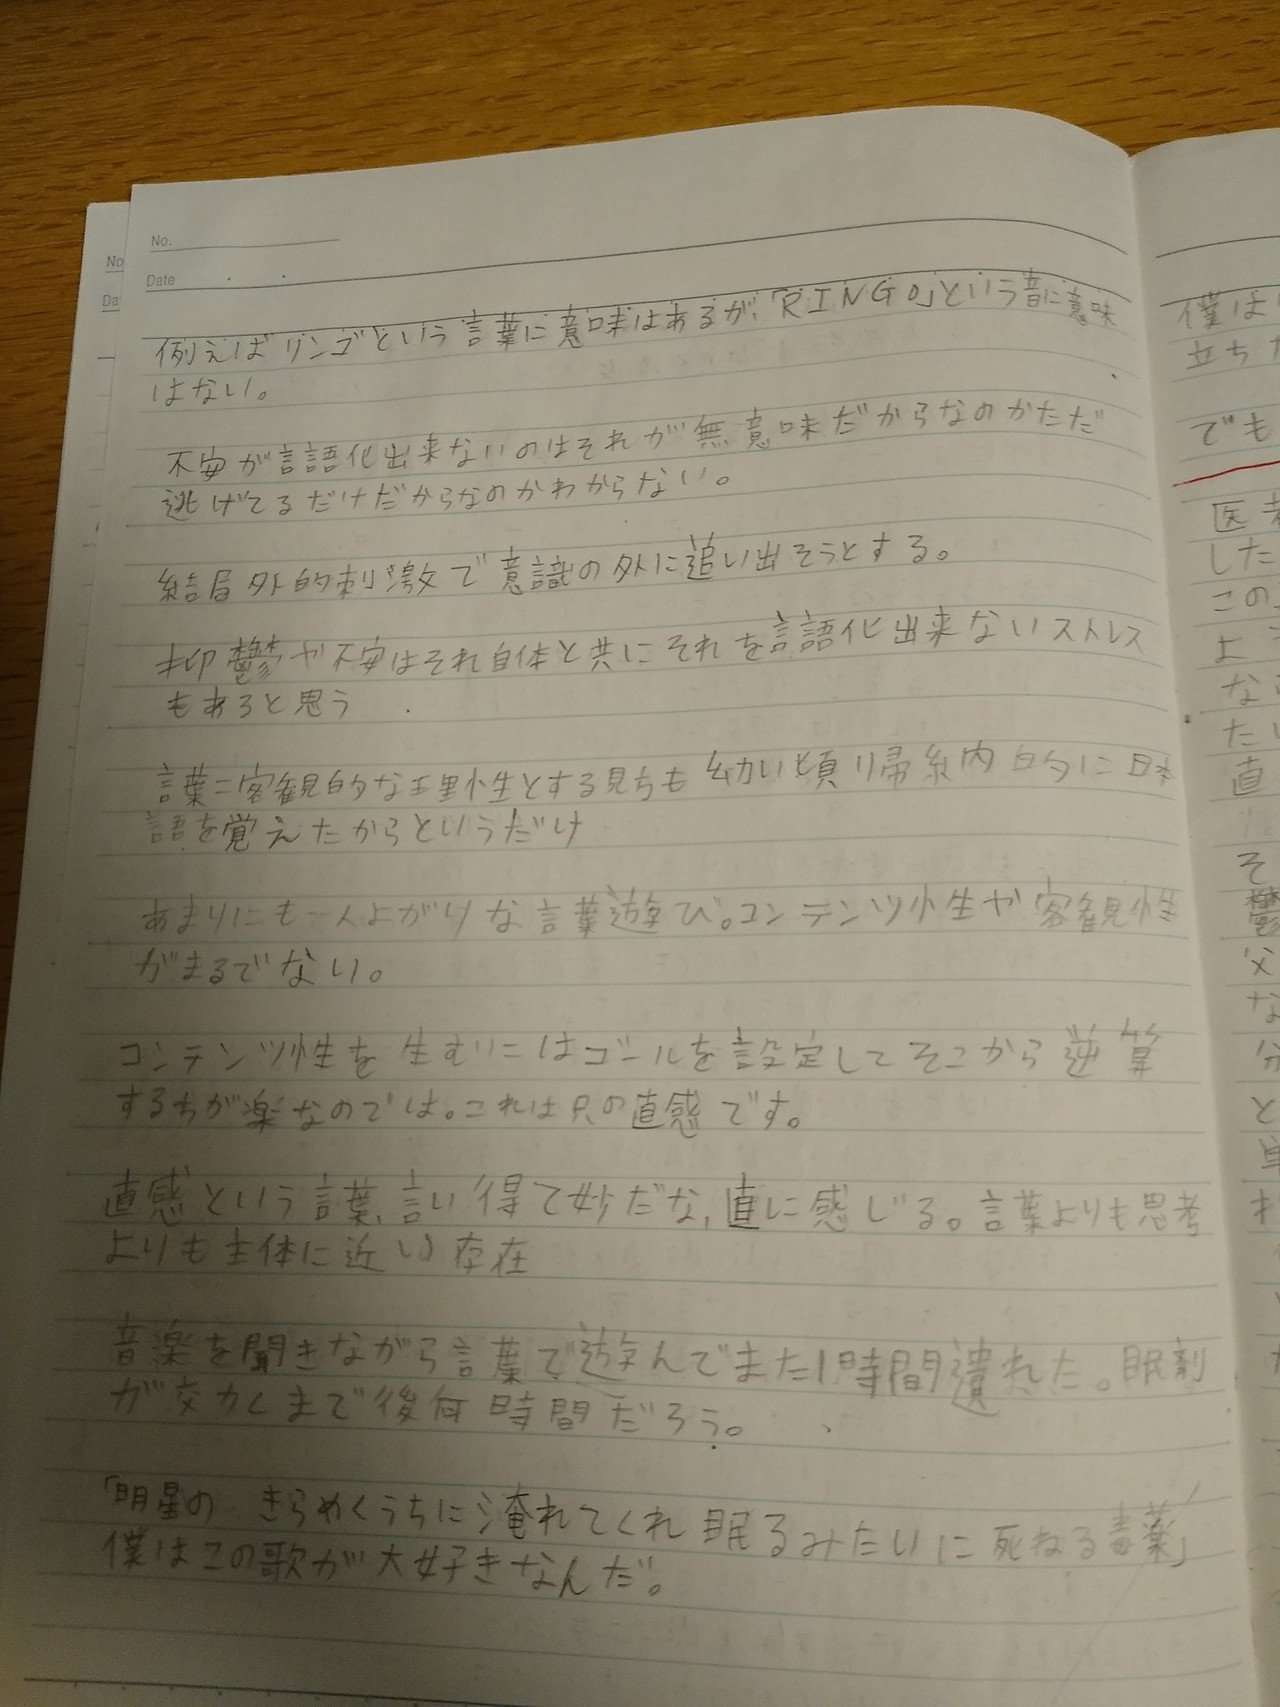 No.
Date
例えばリンゴという言葉に意味はあるが、「RINGO」という音に意味
はない。
不安が言語化出来ないのはそれが無意味だからなのかただ
逃げてるだけだからなのかわからない。
結局外的刺激で意識の外に追い出そうとする。
抑鬱や不安はそれ自体と共にそれを言語化出来ないストレス
もあると思う
言葉に客観的な理性とする見ちも幼い頃帰納的に日本
語を覚えたからというだけ
あまりにも一人よがりな言葉遊び。コンテンツ性や客観性
がまるでない。
コンテンツ性を生むにはゴールを設定してそこから逆算
するちが楽なのでは。これは只の直感です。
直感という言葉、言い得て妙だな、直に感じる。言葉よりも思考
よりも主体に近い存在
音楽を聞きながら言葉で遊んでまた1時間潰れた。眠剤
が効くまで後何時間だろう。
「明星の きらめくうちに淹れてくれ 眠るみたいに死ねる毒薬」
僕はこの歌が大好きなんだ。
No
Da
僕は
立ち
でも
した
この
よ
な
たい
直
そ
鬱
父
な
分
と